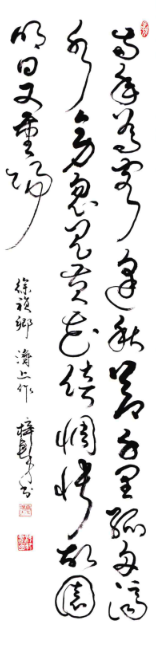 兩年為客逢秋節千里孤舟濟
水旁忽見黃花倍惆悵故園
明日又重陽
徐禎卿 濟上作